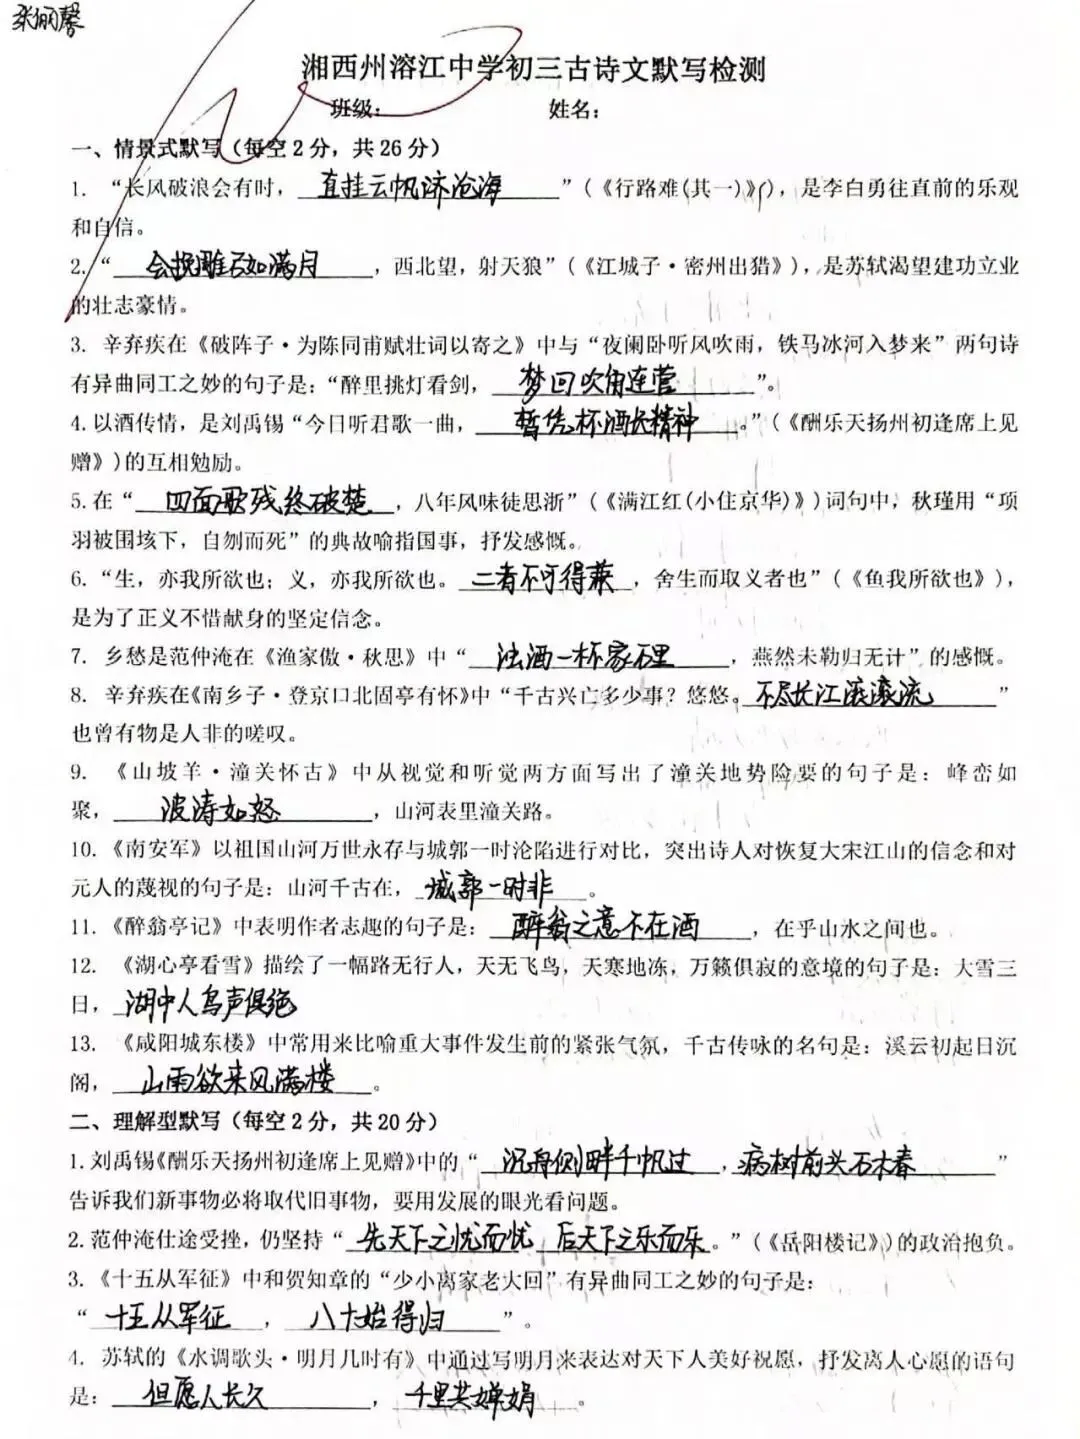 张俪馨
湘西州溶江中学初三古诗文默写检测
班级： 姓名：
一、情景式默写（每空2分，共26分）
1. “长风破浪会有时， 直挂云帆济沧海 ”（《行路难(其一)》），是李白勇往直前的乐观
和自信。
2. “ 会挽雕弓如满月 ，西北望，射天狼”（《江城子·密州出猎》），是苏轼渴望建功立业
的壮志豪情。
3. 辛弃疾在《破阵子·为陈同甫赋壮词以寄之》中与“夜阑卧听风吹雨，铁马冰河入梦来”两句诗
有异曲同工之妙的句子是：“醉里挑灯看剑， 梦回吹角连营 ”。
4.以酒传情，是刘禹锡“今日听君歌一曲， 暂凭杯酒长精神 。”（《酬乐天扬州初逢席上见
赠》)的互相勉励。
5.在“ 四面歌残终破楚 ，八年风味徒思浙”（《满江红(小住京华)》）词句中，秋瑾用“项
羽被围垓下，自刎而死”的典故喻指国事，抒发感慨。
6.“生，亦我所欲也；义，亦我所欲也。 二者不可得兼 ，舍生而取义者也”（《鱼我所欲也》），
是为了正义不惜献身的坚定信念。
7. 乡愁是范仲淹在《渔家傲·秋思》中“ 浊酒一杯家石里 ，燕然未勒归无计”的感慨。
8. 辛弃疾在《南乡子·登京口北固亭有怀》中“千古兴亡多少事？悠悠。 不尽长江滚滚流 ”
也曾有物是人非的嗟叹。
9. 《山坡羊·潼关怀古》中从视觉和听觉两方面写出了潼关地势险要的句子是：峰峦如
聚， 波涛如怒 ，山河表里潼关路。
10.《南安军》以祖国山河万世永存与城郭一时沦陷进行对比，突出诗人对恢复大宋江山的信念和对
元人的蔑视的句子是：山河千古在， 城郭一时非 。
11.《醉翁亭记》中表明作者志趣的句子是： 醉翁之意不在酒 ，在乎山水之间也。
12. 《湖心亭看雪》描绘了一幅路无行人，天无飞鸟，天寒地冻，万籁俱寂的意境的句子是：大雪三
日， 湖中人鸟声俱绝
13. 《咸阳城东楼》中常用来比喻重大事件发生前的紧张气氛，千古传咏的名句是：溪云初起日沉
阁， 山雨欲来风满楼 。
二、理解型默写（每空2分，共20分）
1.刘禹锡《酬乐天扬州初逢席上见赠》中的“ 沉舟侧畔千帆过 ， 病树前头万木春 ”
告诉我们新事物必将取代旧事物，要用发展的眼光看问题。
2.范仲淹仕途受挫，仍坚持“ 先天下之忧而忧 后天下之乐而乐 。”（《岳阳楼记》)的政治抱负。
3.《十五从军征》中和贺知章的“少小离家老大回”有异曲同工之妙的句子是：
“ 十五从军征 ， 八十始得归 ”。
4. 苏轼的《水调歌头·明月几时有》中通过写明月来表达对天下人美好祝愿，抒发离人心愿的语句
是： 但愿人长久 ， 千里共婵娟 。